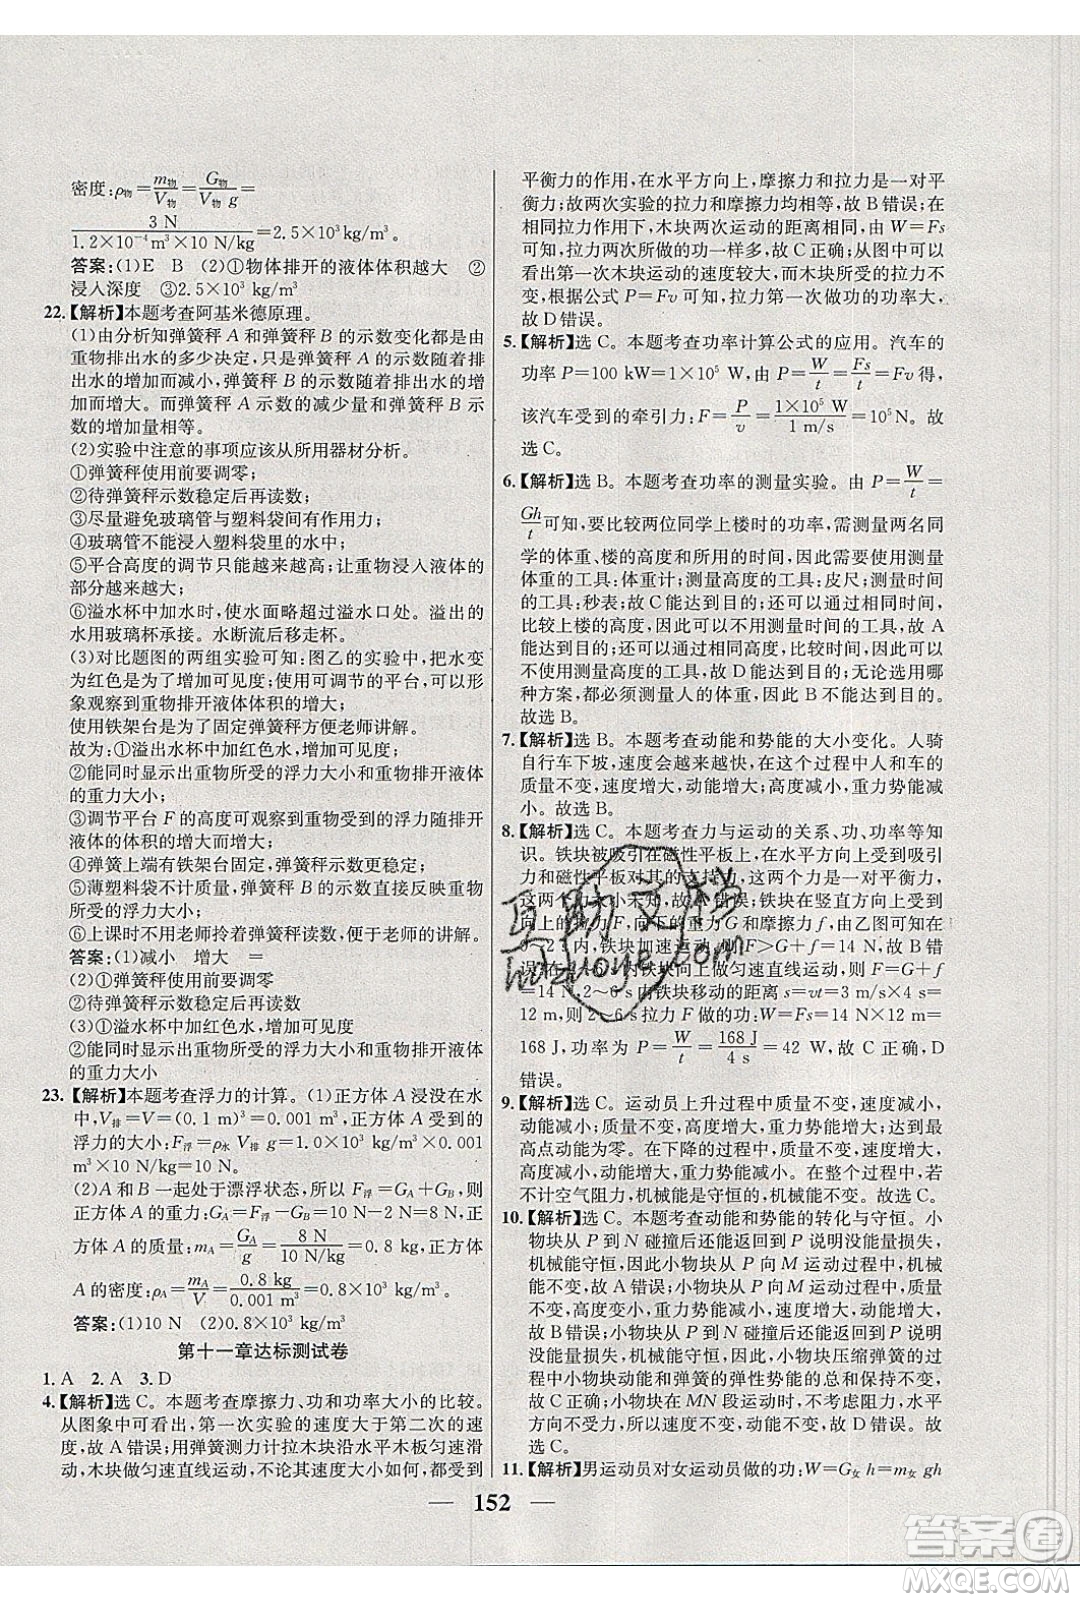 密度:ρ物=m物/V物=G物/V物g=
3 N/1.2×10⁻⁴m³×10 N/kg=2.5×10³ kg/m³
答案:(1)E B (2)①物体排开的液体体积越大 ②
浸入深度 ③2.5×10³ kg/m³
22.【解析】本题考查阿基米德原理。
(1)由分析知弹簧秤 A 和弹簧秤 B 的示数变化都是由
重物排出水的多少决定,只是弹簧秤 A 的示数随着排
出水的增加而减小,弹簧秤 B 的示数随着排出水的增
加而增大。而弹簧秤 A 示数的减少量和弹簧秤 B 示数
的增加量相等。
(2)实验中注意的事项应该从所用器材分析。
①弹簧秤使用前要调零;
②待弹簧秤示数稳定后再读数;
③尽量避免玻璃管与塑料袋间有作用力;
④玻璃管不能浸入塑料袋里的水中;
⑤平台高度的调节只能越来越高;让重物浸入液体的
部分越来越大;
⑥溢水杯中加水时,使水面略超过溢水口处。溢出的
水用玻璃杯承接。水断流后移走杯。
(3)对比题图的两组实验可知:图乙的实验中,把水变
为红色是为了增加可见度。使用可调节的平台,可以形
象观察到重物排开液体体积的增大。
使用铁架台是为了固定弹簧秤方便老师讲解。
故为:①溢出水杯中加红色水,增加可见度;
②能同时显示出重物所受的浮力大小和重物排开液体
的重力大小;
③调节平台 F 的高度可观察到重物受到的浮力随排开
液体的体积的增大而增大;
④弹簧上端有铁架台固定,弹簧秤静止,便于读数;
⑤薄塑料袋不计质量,弹簧秤 B 的示数直接反映重物
所受的浮力大小;
⑥上课时不用老师拎着弹簧秤,便于老师的讲解。
答案:(1)减小 增大 =
(2)①弹簧秤使用前要调零
②待弹簧秤示数稳定后再读数
(3)①溢水杯中加红色水,增加可见度
②能同时显示出重物所受的浮力大小和重物排开液体
的重力大小
23.【解析】本题考查浮力的计算。(1)正方体 A 浸没在水
中,V排=V=(0.1 m)³=0.001 m³,正方体 A 受到的
浮力的大小:F浮=ρ水 V排 g=1.0×10³ kg/m³×0.001
m³×10 N/kg=10 N。
(2)A 和 B 一起处于漂浮状态,所以 F浮=GA+GB,则
正方体 A 的重力:GA=F浮-GB=10 N-2 N=8 N,正
方体 A 的质量:mA=GA/g=8 N/10 N/kg=0.8 kg,正方体
A 的密度:ρA=mA/V=0.8 kg/0.001 m³=0.8×10³ kg/m³。
答案:(1)10 N (2)0.8×10³ kg/m³
第十一章达标测试卷
1.A 2.A 3.D
4.【解析】选 C。本题考查摩擦力、功和功率大小的比较。
从图象中可看出,第一次实验的速度大于第二次的速
度,故 A 错误;用弹簧测力计拉木块沿水平木板匀速滑
动,木块做匀速直线运动,不论其速度大小如何,都受到
平衡力的作用,在水平方向上,摩擦力和拉力是一对平
衡力;故两次实验的拉力和摩擦力均相等,故 B 错误;在
相同拉力作用下,木块两次运动的距离相同,由 W=Fs
可知,拉力两次所做的功一样多,故 C 正确;从图中可以
看出第一次木块运动的速度较大,而木块所受的拉力不
变,根据公式 P=Fv 可知,拉力第一次做功的功率大,
故 D 错误。
5.【解析】选 C。本题考查功率计算公式的应用。汽车的
功率 P=100 kW=1×10⁵ W,由 P=W/t=Fs/t=Fv 得,
该汽车受到的牵引力:F=P/v=1×10⁵ W/1 m/s=10⁵N。故
选 C。
6.【解析】选 B。本题考查功率的测量实验。由 P=W/t=
Gh/t可知,要比较两位同学上楼时的功率,需测量两名同
学的体重、楼的高度和所用的时间,因此需要使用测量
体重的工具:体重计;测量高度的工具:皮尺;测量时间
的工具:秒表;故 C 能达到目的;还可以通过相同时间,
比较上楼的高度来达到目的,因此不用测量时间,故 A
能达到目的;也可以用测量时间来达到目的,因此不用
测量高度的工具,故 D 能达到目的;无论选用哪
种方案,都必须测量人的体重,因此 B 不能达到目的。
故选 B。
7.【解析】选 B。本题考查动能和势能的大小变化。人骑
自行车下坡,速度会越来越快,在这个过程中人和车的
质量不变,速度增大,动能增大,高度减小,重力势能减
小。故选 B。
8.【解析】选 C。本题考查力与运动的关系、功、功率等知
识。铁块被吸引在磁性平板上,在水平方向上受到吸引
力和磁性平板对其的支持力,这两个力是一对平衡力,
因为这两个力大小未知,故 A 错误;铁块在竖直方向上
受向上的拉力 F,向下的重力 G 和摩擦力 f,由乙图可知
0~2 s 内,铁块加速运动,F>G+f=14 N,故 B 错
误;在 2~6 s 内铁块向上做匀速直线运动,所以 F=G+f
=14 N,2~6 s 内铁块移动的距离 s=vt=3 m/s×4 s=
12 m,则 2~6 s 拉力 F 做的功:W=Fs=14 N×12 m=
168 J,功率为 P=W/t=168 J/4 s=42 W,故 C 正确,D
错误。
9.【解析】选 C。运动员上升过程中质量不变,速度减小,
动能减小;质量不变,高度增大,重力势能增大;达到最
高点动能不为零。在下降的过程中,质量不变,速度增大,
高度减小,动能增大,重力势能减小。整个过程中,若
不计空气阻力,机械能是守恒的,机械能不变。故选 C。
10.【解析】选 C。本题考查动能和势能的转化与守恒。小
物块从 P 到 N 碰撞后还能返回 P 说明没有能量损失,
机械能守恒,因此小物块从 P 向 M 运动过程中,机械
能不变,故 A 错误;小物块从 P 向 M 运动过程中,质量
不变,高度变小,重力势能减小,质量不变,速度增大,
动能增大,故 B 错误;小物块与 N 碰撞后还能返回 P
说明没有能量损失,机械能守恒,小物块压缩弹簧过程
中,小物块的动能和弹簧的弹性势能的总和保持不变,
故 C 正确;若小物块在 MN 段运动中,质量不变,速度
不变,动能不变,高度不变,重力势能不变,故 D 错误。故
选 C。
11.【解析】男运动员对女运动员做的功:W=G女 h=m女 gh
152
互助文档
huzuoye.com
答案圈
MXQE.COM